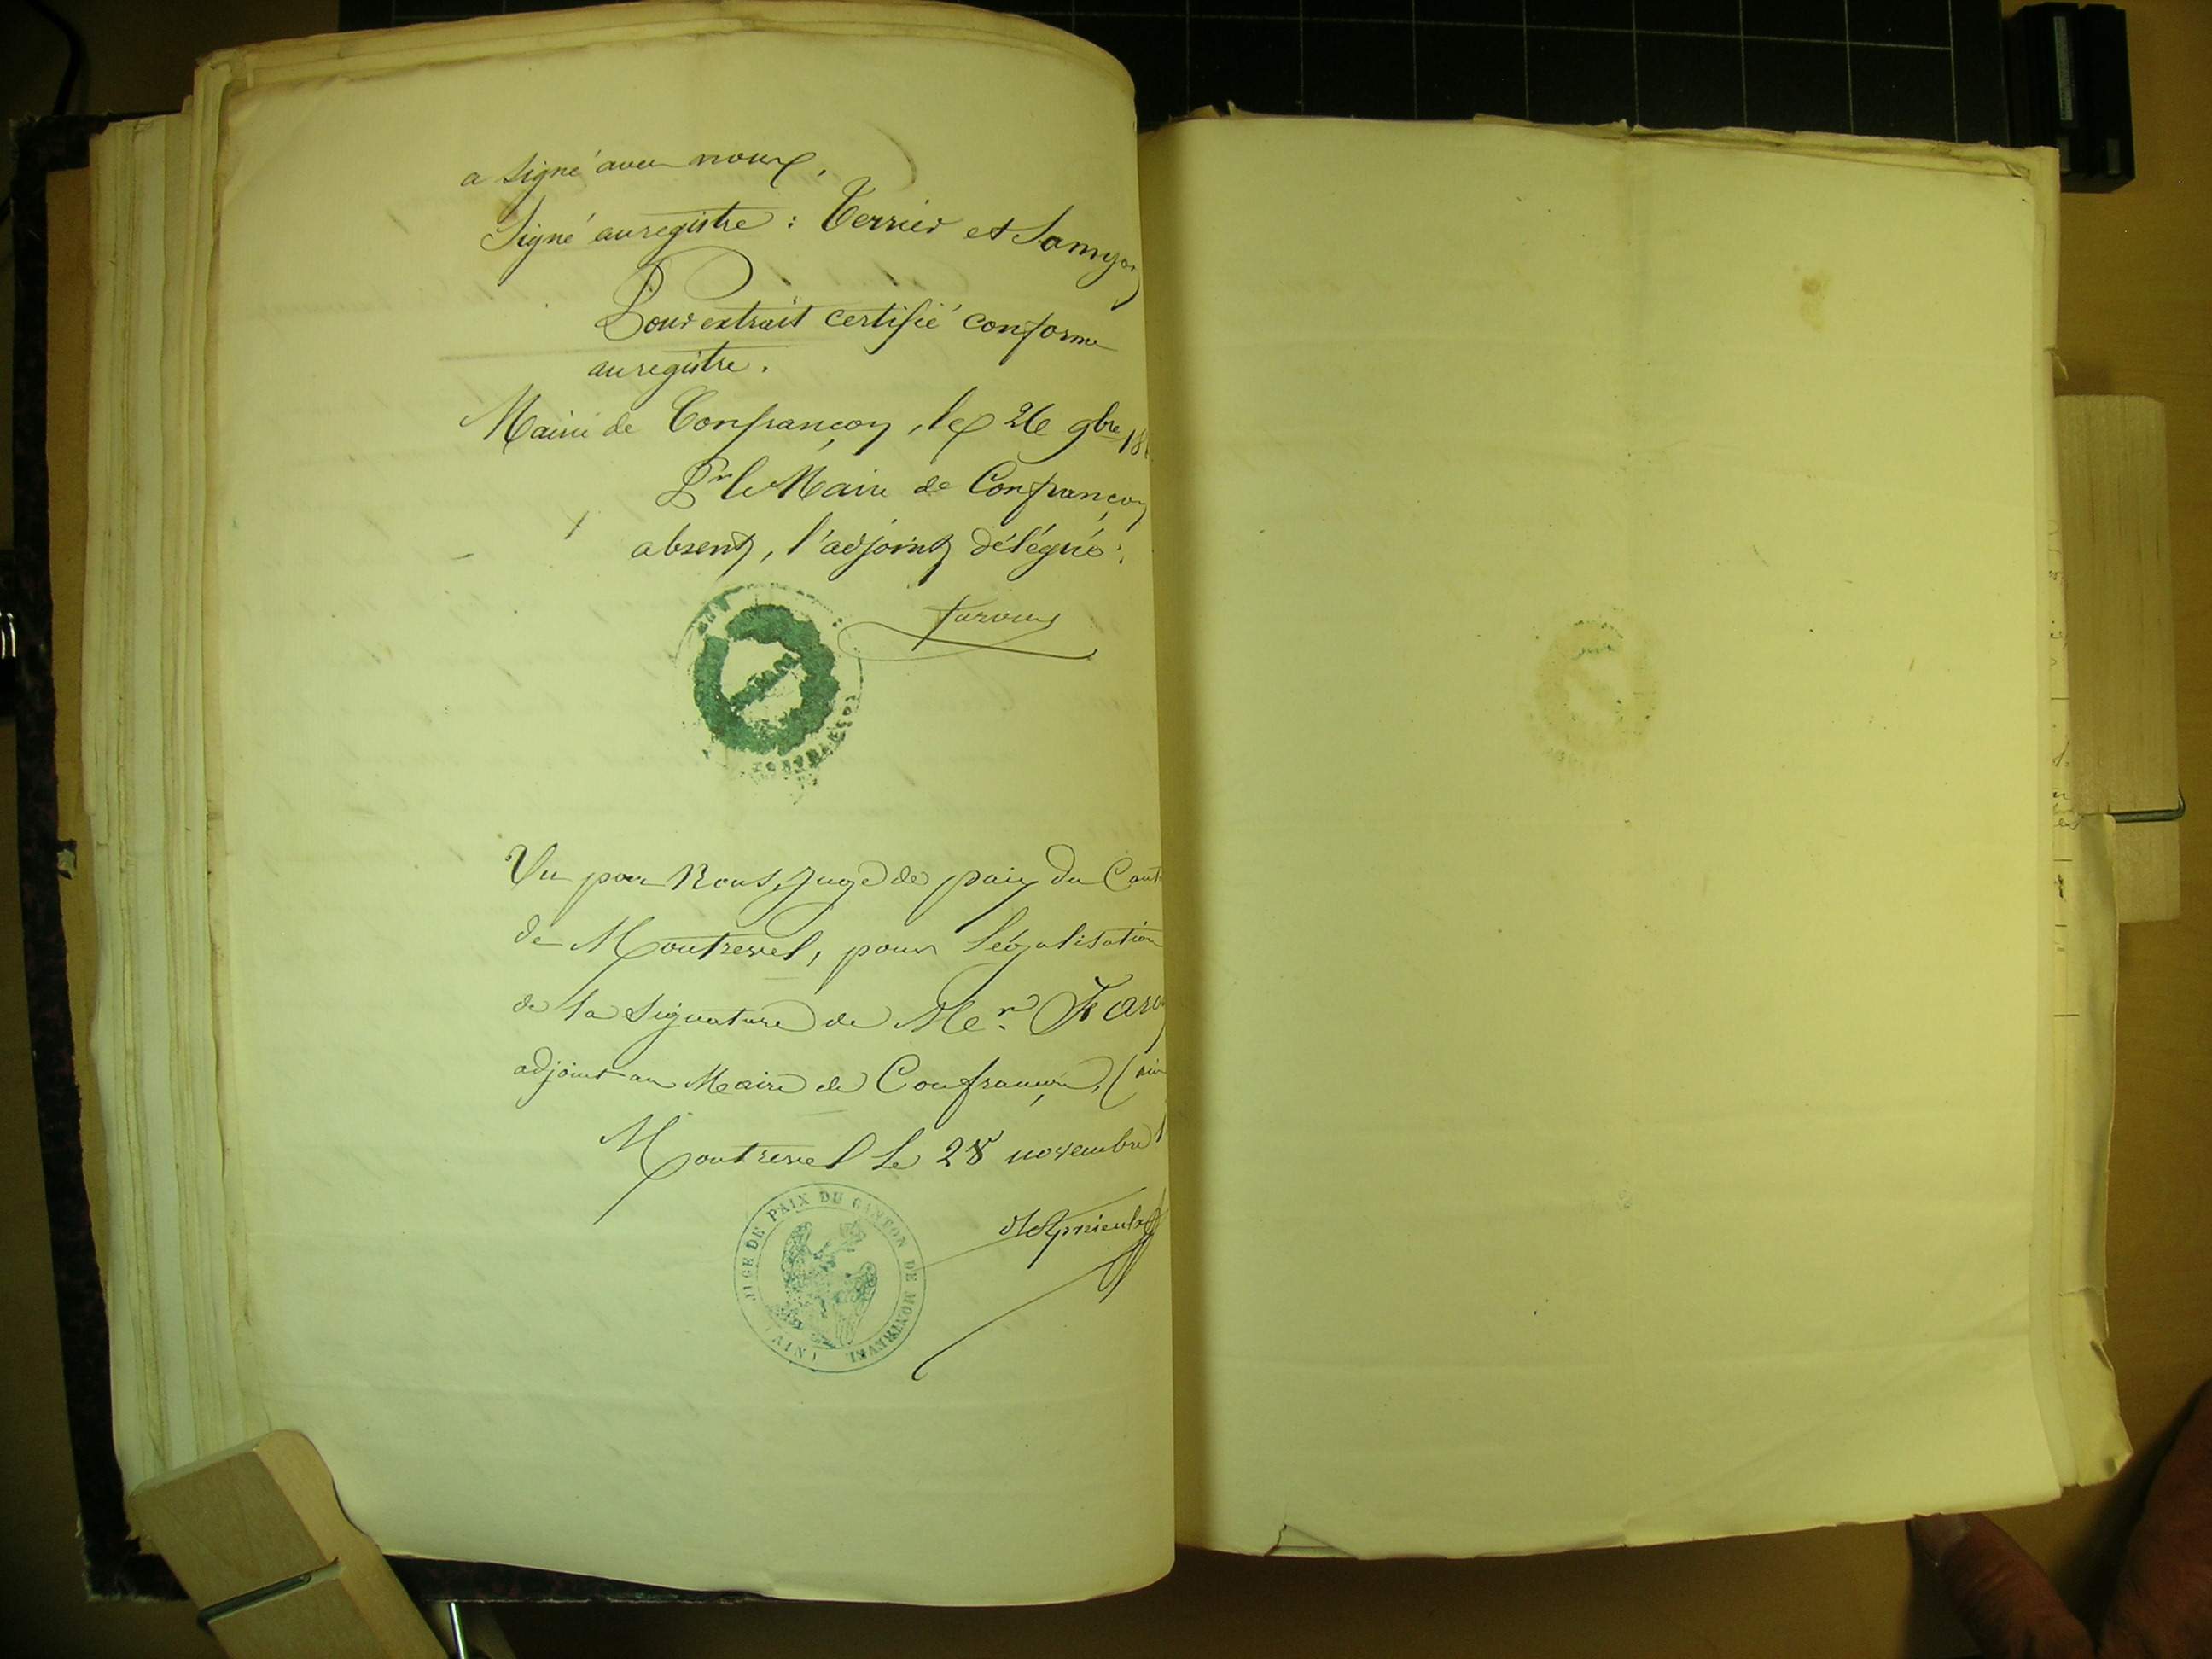 a signé avec nous,
Signé au registre : Terrier et
Pour extrait certifié conforme
au registre.
Mairie de Confrançon, le 26 9bre 18
Pr le Maire de Confrançon
absent, l'adjoint délégué :
Vu par Nous, Juge de paix du Cant
de Montrevel, pour légalisation
de la signature de Mr.
adjoint au Maire de Confrançon, (ain
Montrevel le 28 novembre
JUGE DE PAIX DU CANTON DE MONTREVEL
(AIN)